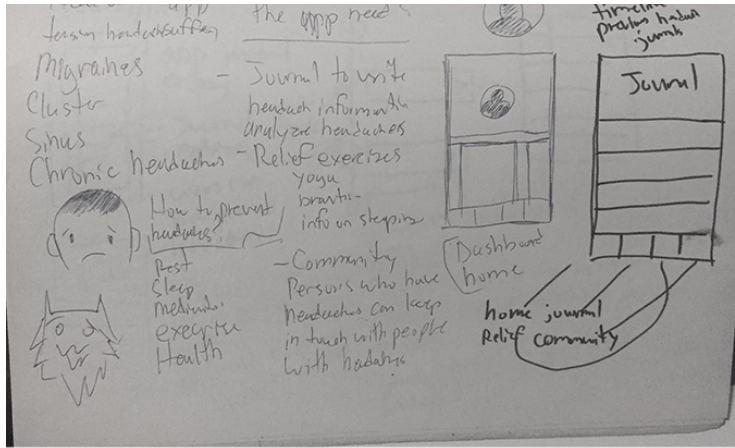 app
tension headach suffer
Migraines
Cluster
Sinus
Chronic headaches
How to prevent
headaches?
Rest
Sleep
exercise
Health
the app need?
- Journal to write
headach information
analyze headaches
- Relief exercises
yoga
info on sleeping
- Community
Persons who have
headaches can keep
in touch with people
with headaches
Dashboard
home
timeline
previous
Journal
home journal
Relief community